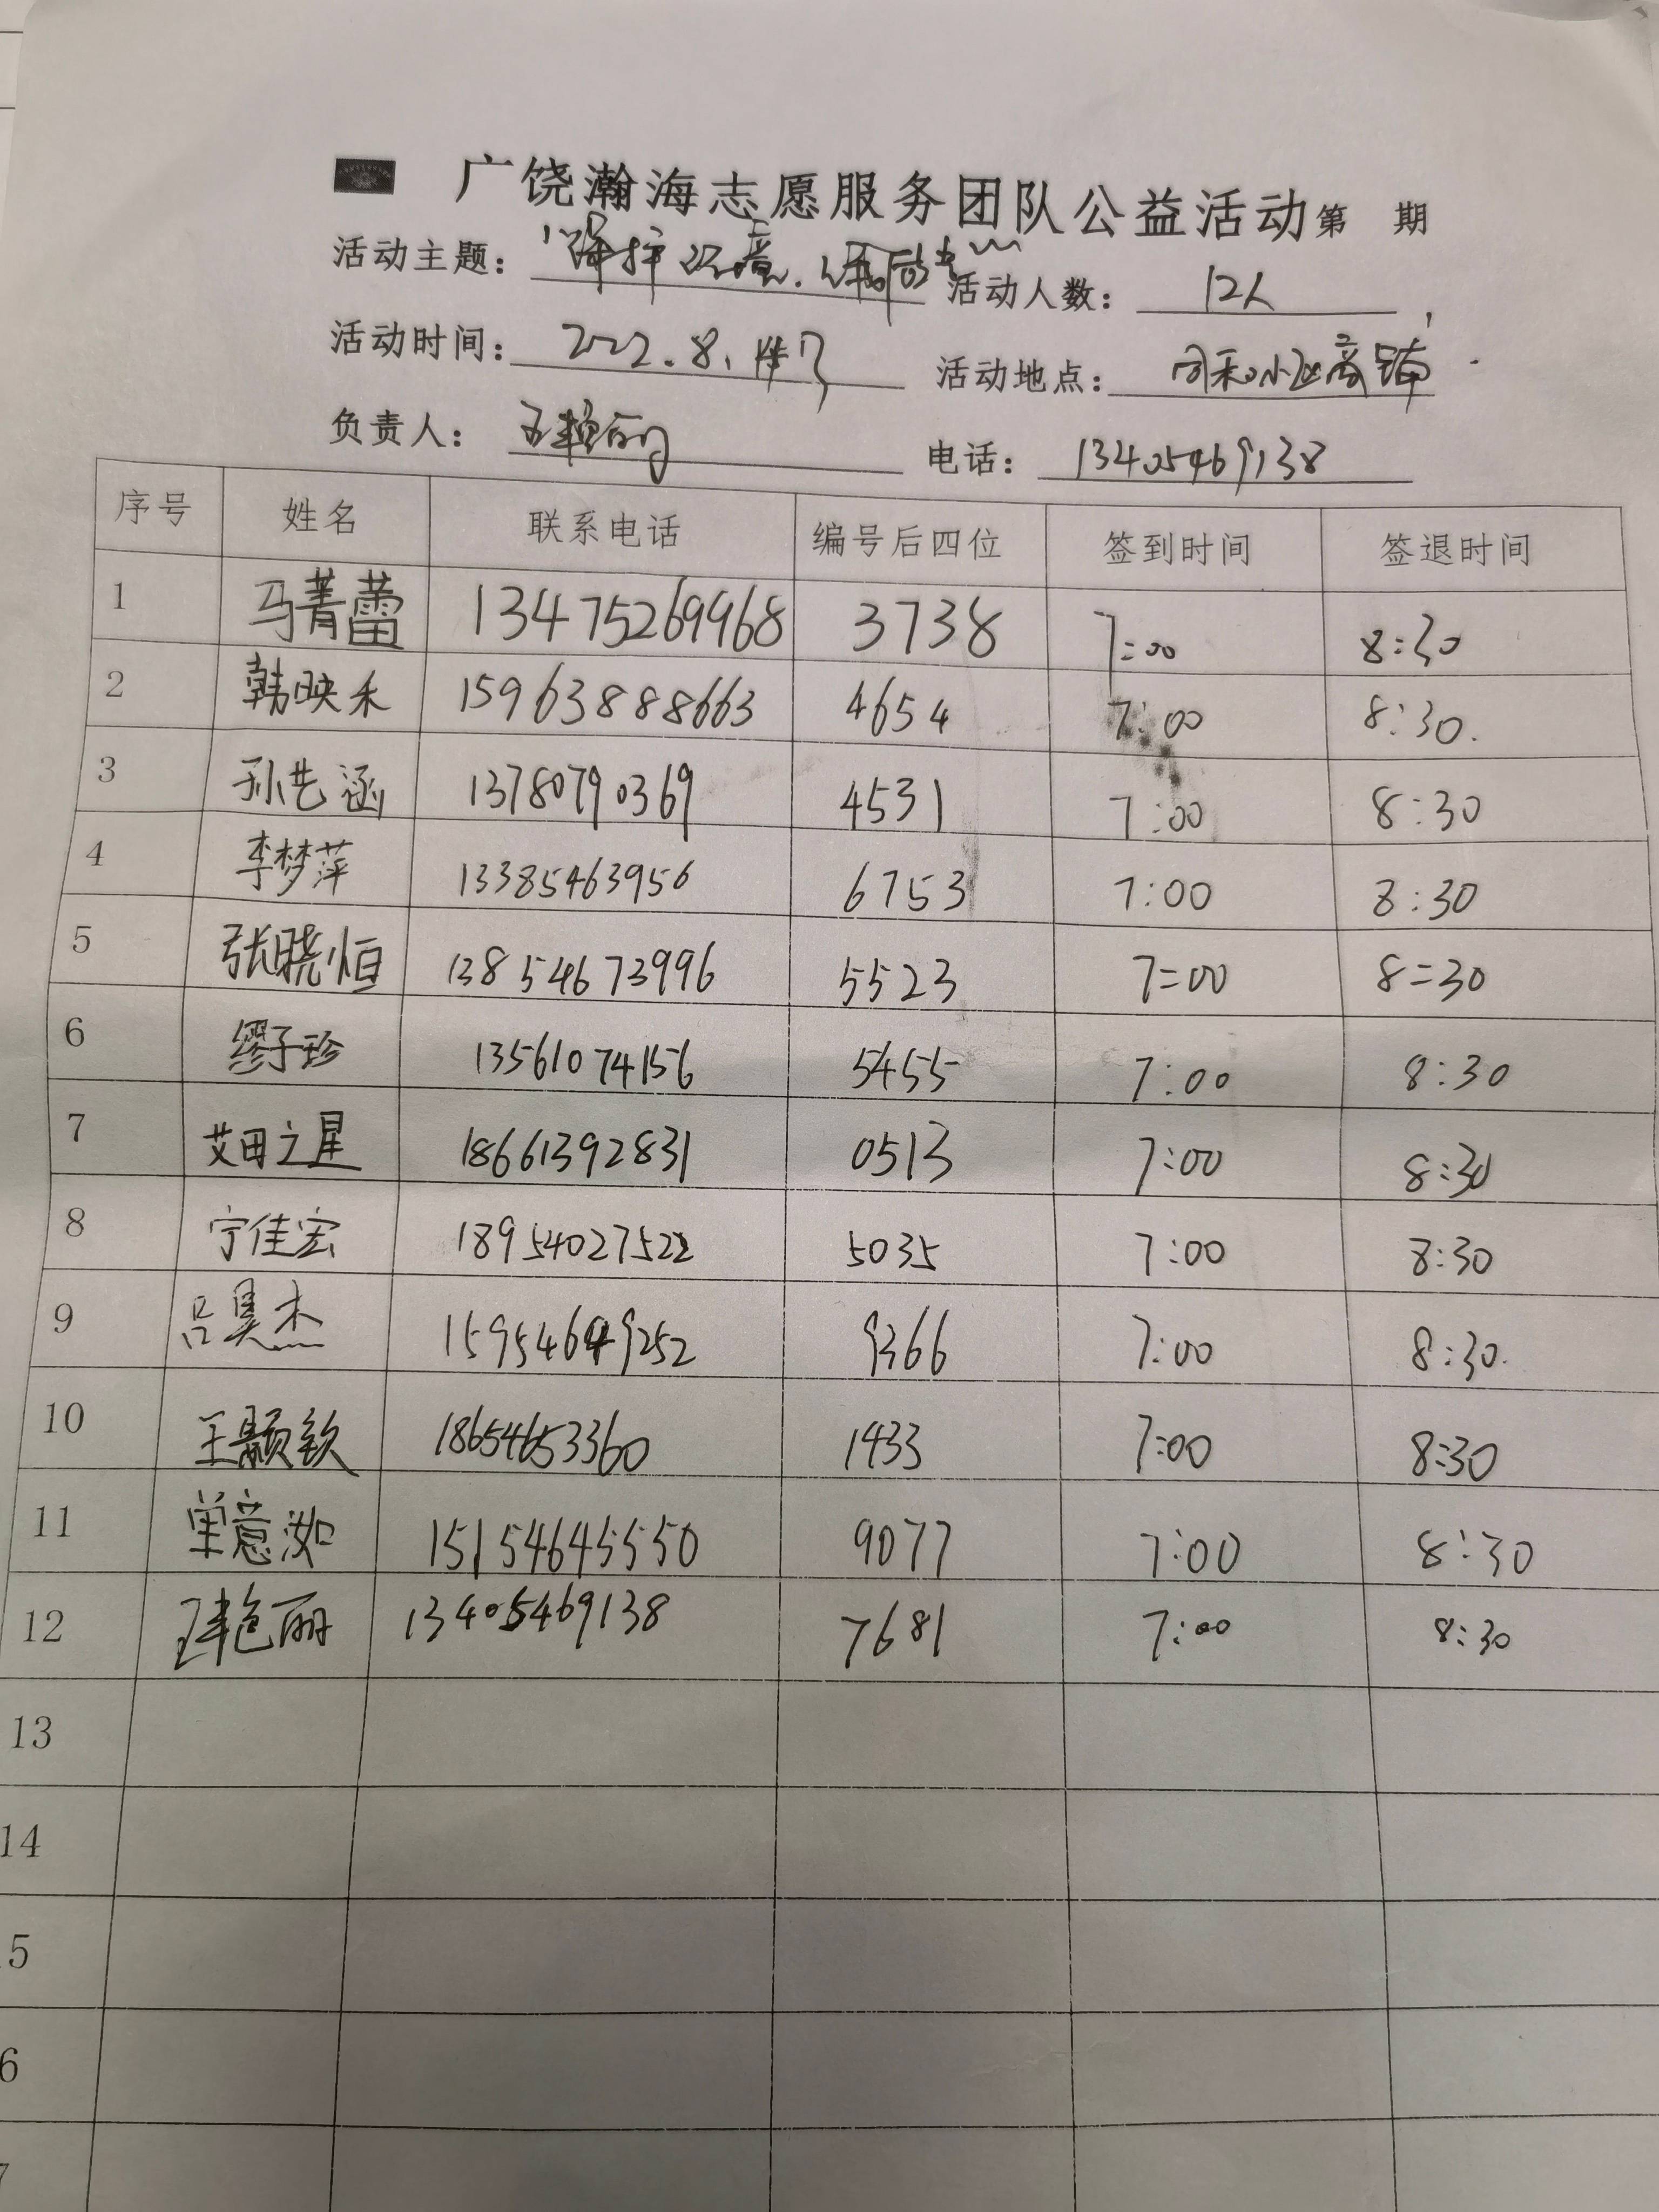 广饶瀚海志愿服务团队公益活动第 期
活动主题： 活动人数： 12人
活动时间： 2022.8. 活动地点： 同和小区商铺
负责人： 电话： 13405469138
序号 姓名 联系电话 编号后四位 签到时间 签退时间
1 马菁蕾 13475269968 3738 7:00 8:30
2 韩映禾 15963888663 4654 7:00 8:30.
3 孙艺涵 13780790369 4531 7:00 8:30
4 李梦萍 13385463956 6753 7:00 8:30
5 张晓恒 13854673996 5523 7=00 8=30
6 缪子珍 13561074156 5455 7:00 8:30
7 艾田之星 18661392831 0513 7:00 8:30
8 宁佳宏 18954027522 5035 7:00 8:30
9 吕昊杰 9366 7:00 8:30.
10 王颢钦 18654653360 1433 7:00 8:30
11 单意洳 15154645550 9077 7:00 8:30
12 13405469138 7681 7:00 8:30
13
14
15
6
7